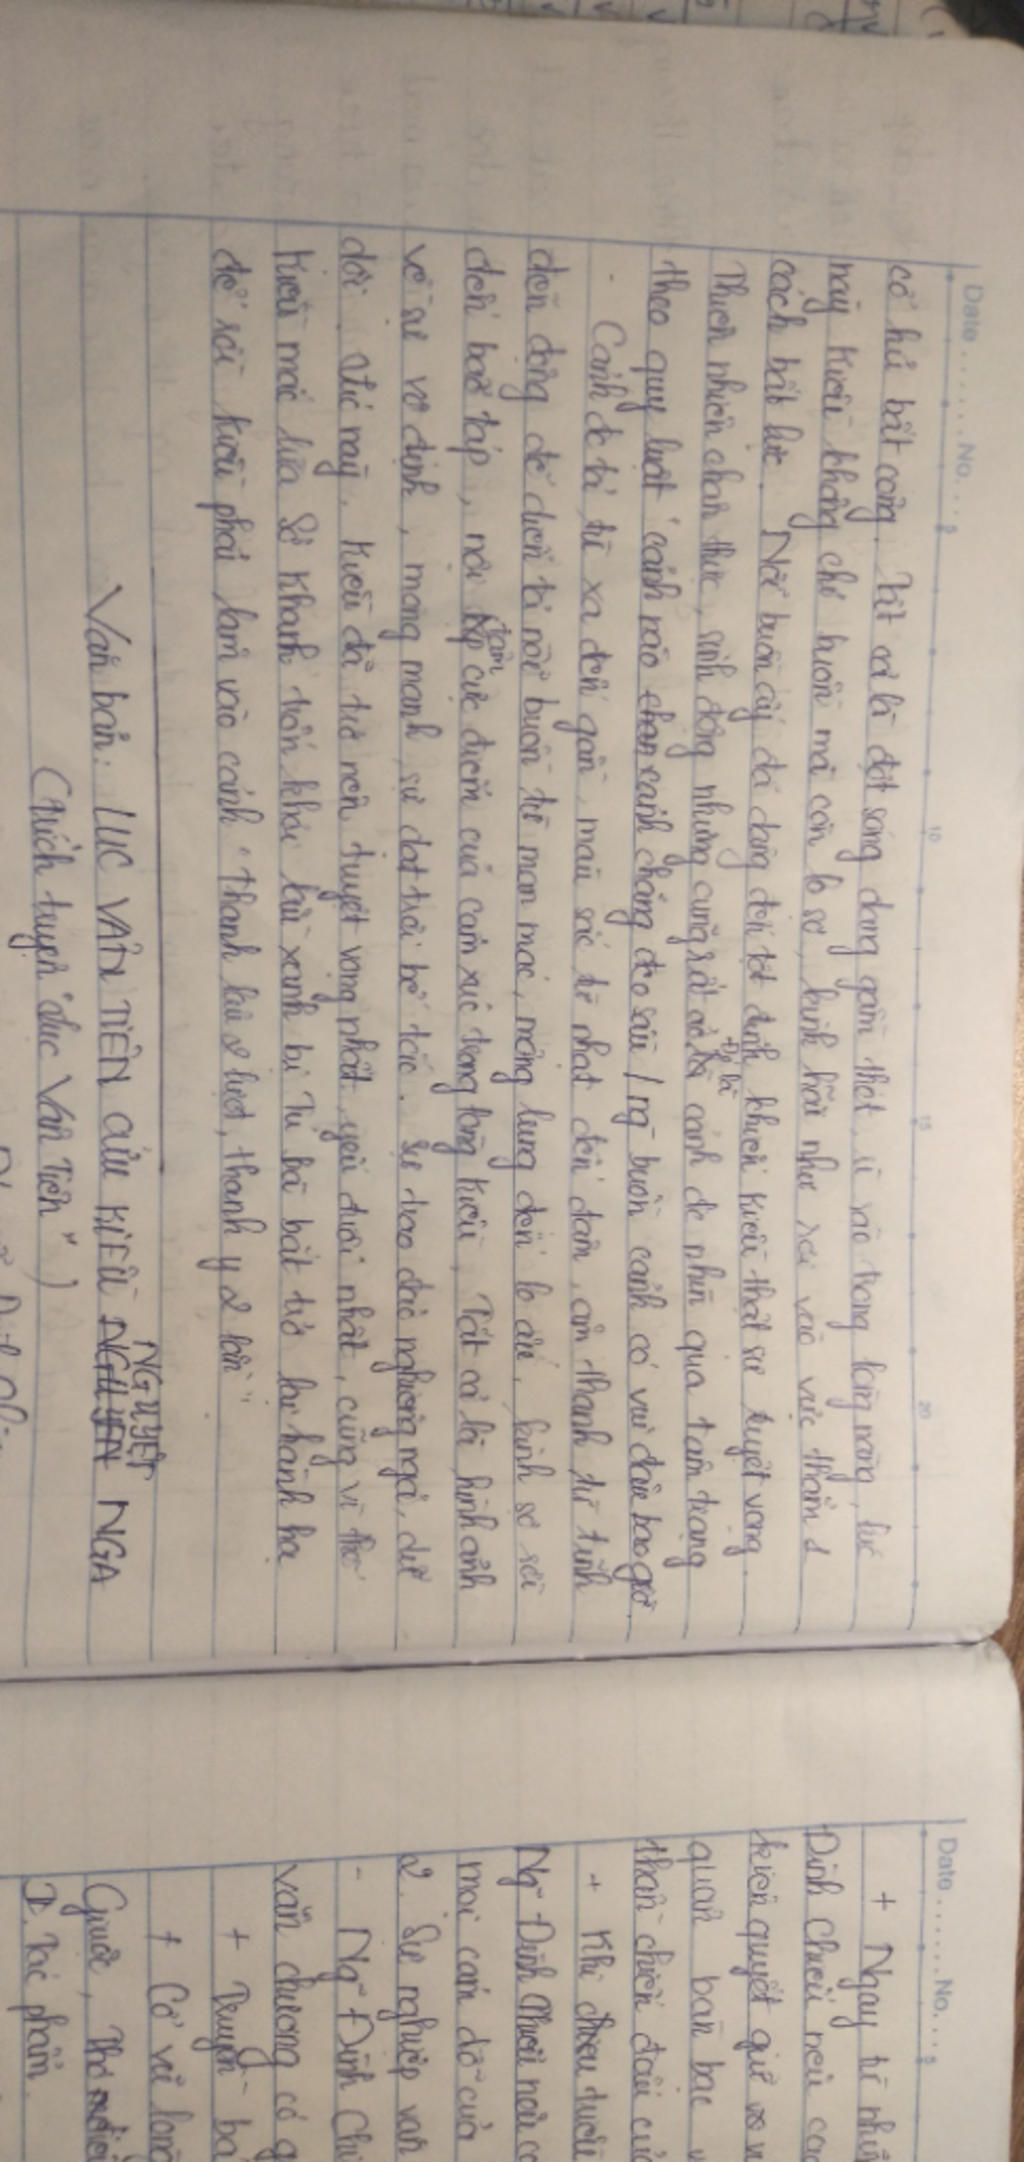 Date.......No...
5 10 15 20
cổ hủ bất công. Tất cả là đợt sóng đang gầm thét, ì xào trong lòng nàng, lúc
này Kiều không chỉ buồn mà còn lo sợ, kinh hãi như rơi vào vực thẳm 1
cách bất lực. Nỗi buồn ấy đã dâng đến tột đỉnh khiến Kiều thật sự tuyệt vọng.
Thiên nhiên chân thực, sinh động nhưng cũng rất ảo. Đó là cảnh đc nhìn qua tâm trạng
theo quy luật "cảnh nào cảnh chẳng đeo sầu / ng buồn cảnh có vui đâu bao giờ.
- Cảnh đc tả từ xa đến gần, màu sắc từ nhạt đến đậm, âm thanh từ tĩnh
đến động để diễn tả nỗi buồn từ man mác, mông lung đến lo âu, kinh sợ rồi
đến bão táp, nội tâm cực điểm của cảm xúc trong lòng Kiều, Tất cả là hình ảnh
về sự vô định, mong manh, sự dạt trôi bế tắc. Sự trao đảo nghiêng ngả, dữ
dội. Lúc này, Kiều đã trở nên tuyệt vọng nhất, yếu đuối nhất, cũng vì thế
Kiều mắc lừa Sở Khanh trốn khỏi lầu xanh bị Tú bà bắt trở lại hành hạ
để rồi Kiều phải lâm vào cảnh "thanh lâu 2 lượt, thanh y 2 lần"
Văn bản: LỤC VÂN TIÊN CỨU KIỀU NGUYỆT NGA
(Trích truyện "Lục Vân Tiên")
Date.......No...
5
+ Ngay từ nhữ
Đình Chiểu nêu cao
kiên quyết giữ vữ
quân bàn bạc
thần chiến đấu củ
+ Khi
Ng Đình Chiểu
mọi cám dỗ của
2. Sự nghiệp văn
- Ng Đình Chi
văn chương có g
+ Truyền bá
+ Cổ vũ lòn
Giuộc, Thơ điếu
II. Tác phẩm